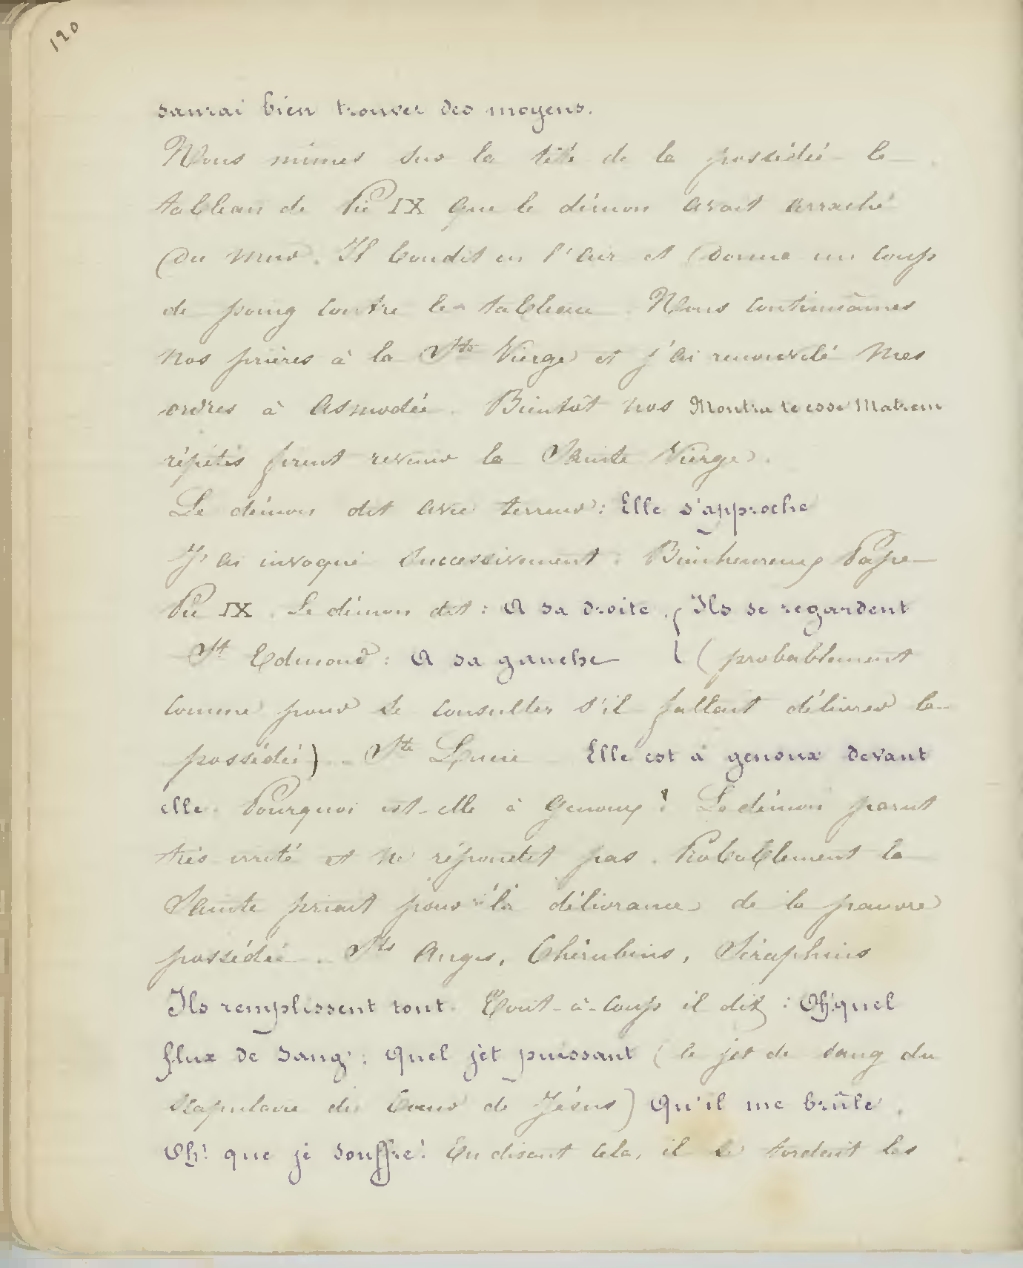 120
saurai bien trouver des moyens.
Nous mîmes sur la tête de la possédée le
tableau de Pie IX que le démon avait arraché
du mur. Il bondit en l'air et donne un coup
de poing contre le tableau. Nous continuâmes
nos prières à la Ste Vierge et j'ai renouvelé mes
ordres à Asmodée. Bientôt nos Monstra te esse Matrem
répétés firent revenir la Sainte Vierge.
Le démon dit avec terreur: Elle s'approche
J'ai invoqué successivement: Bienheureux Pape
Pie IX. Le démon dit: A sa droite. { Ils se regardent
St Edmond: A sa gauche { (probablement
comme pour se consulter s'il fallait délivrer la
possédée). Ste Lucie Elle est à genoux devant
elle. Pourquoi est-elle à genoux? Le démon parut
très irrité et ne répondit pas. Probablement la
Sainte priait pour la délivrance de la pauvre
possédée. Sts Anges, Chérubins, Séraphins
Ils remplissent tout. Tout-à-coup il dit: Oh! quel
flux de sang! quel jet puissant (le jet de sang du
scapulaire du Coeur de Jésus) Qu'il me brûle.
Oh! que je souffre! En disant cela, il se tordait les